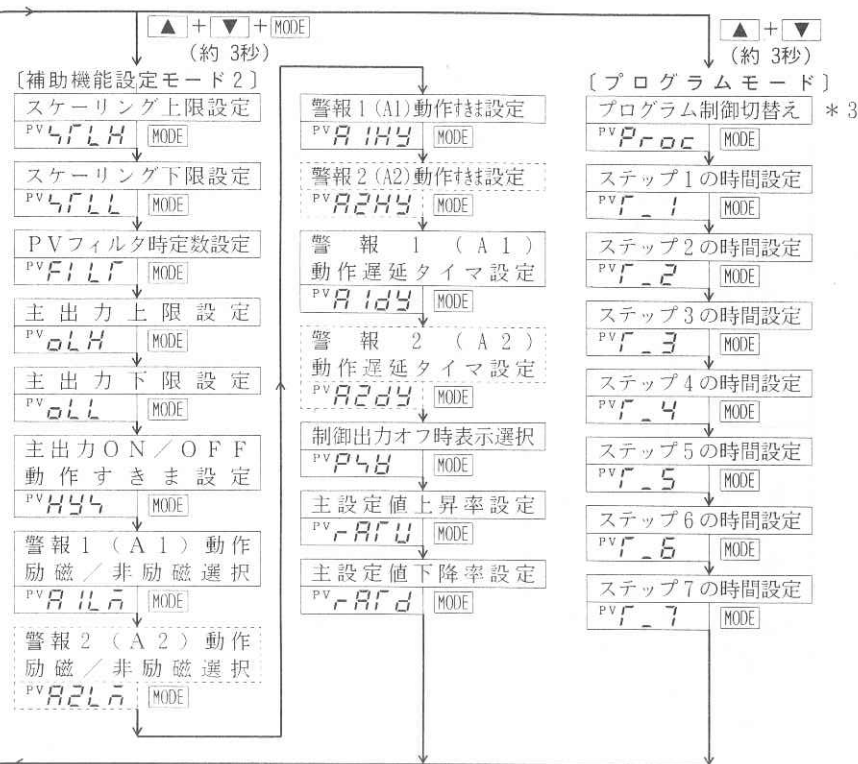 ▲ + ▼ + MODE
(約 3秒)
〔補助機能設定モード2〕
スケーリング上限設定
PV MODE
スケーリング下限設定
PV MODE
PVフィルタ時定数設定
PV FILT MODE
主出力上限設定
PV oLH MODE
主出力下限設定
PV oLL MODE
主出力ON/OFF
動作すきま設定
PV HYS MODE
警報1(A1)動作
励磁/非励磁選択
PV A1L MODE
警報2(A2)動作
励磁/非励磁選択
PV A2L MODE
警報1(A1)動作すきま設定
PV A1HY MODE
警報2(A2)動作すきま設定
PV A2HY MODE
警報1(A1)
動作遅延タイマ設定
PV A1dY MODE
警報2(A2)
動作遅延タイマ設定
PV A2dY MODE
制御出力オフ時表示選択
PV MODE
主設定値上昇率設定
PV rATU MODE
主設定値下降率設定
PV rATd MODE
▲ + ▼
(約 3秒)
〔プログラムモード〕
プログラム制御切替え *3
PV Proc MODE
ステップ1の時間設定
PV T_1 MODE
ステップ2の時間設定
PV T_2 MODE
ステップ3の時間設定
PV T_3 MODE
ステップ4の時間設定
PV T_4 MODE
ステップ5の時間設定
PV T_5 MODE
ステップ6の時間設定
PV T_6 MODE
ステップ7の時間設定
PV T_7 MODE